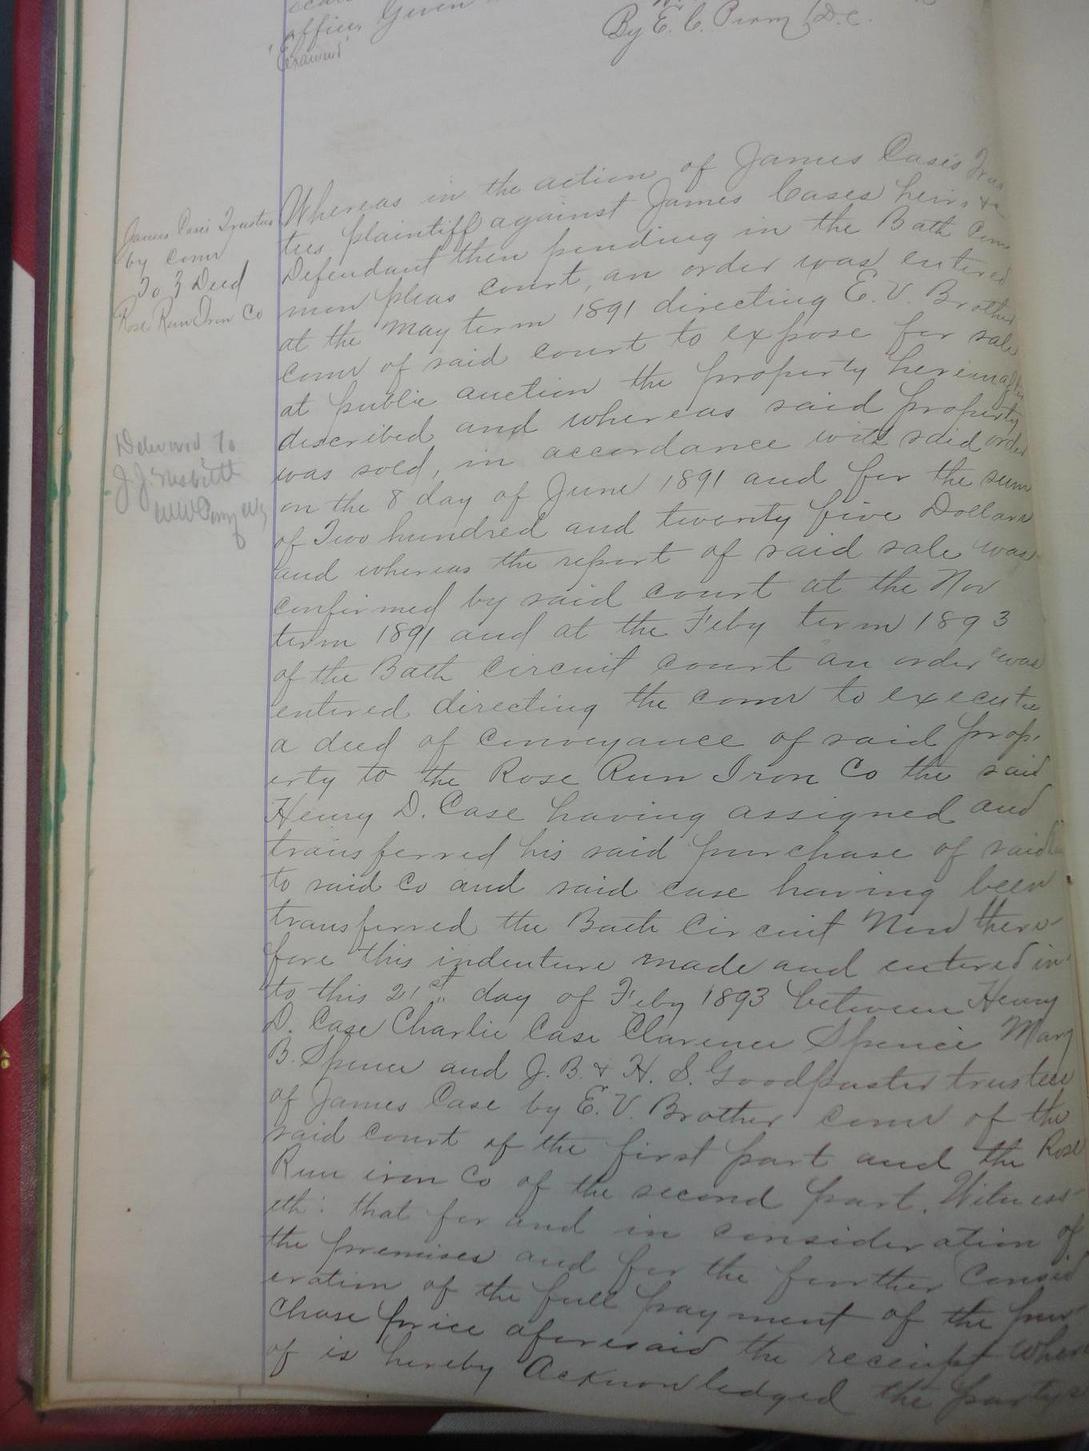 office, Given
By E. C.
D.C.
"Examined"
James Cases Trustee
by Comr
To } Deed
Rose Run Iron Co
Delivered To
J. J. Nesbitt
Whereas in the action of James Cases Trus
tees plaintiff against James Cases heirs &c
Defendant then pending in the Bath Com
mon pleas court, an order was entered
at the May term 1891 directing E. V. Brother
comr of said court to expose for sale
at public auction the property hereinafter
described and whereas said property
was sold, in accordance with said order
on the 8 day of June 1891 and for the sum
of Two hundred and twenty five Dollars
and whereas the report of said sale was
confirmed by said court at the Nov
term 1891 and at the Feby term 1893
of the Bath circuit court an order was
entered directing the comr to execute
a deed of conveyance of said prop.
erty to the Rose Run Iron Co the said
Henry D. Case having assigned and
transferred his said purchase of said
to said Co and said case having been
transferred the Bath Circuit Now there-
fore this indenture made and entered in
to this 21st day of Feby 1893 between Henry
D. Case Charlie Case Clarence Spence Mary
B. Spence and J. B. & H. S. Goodpaster trustees
of James Case by E. V. Brother comr of the
said court of the first part and the Rose
Run iron Co of the second part. Witness-
eth: that for and in consideration of
the premises and for the further Consid
eration of the full payment of the pur
chase price aforesaid the receipt where
of is hereby Acknowledged the partys